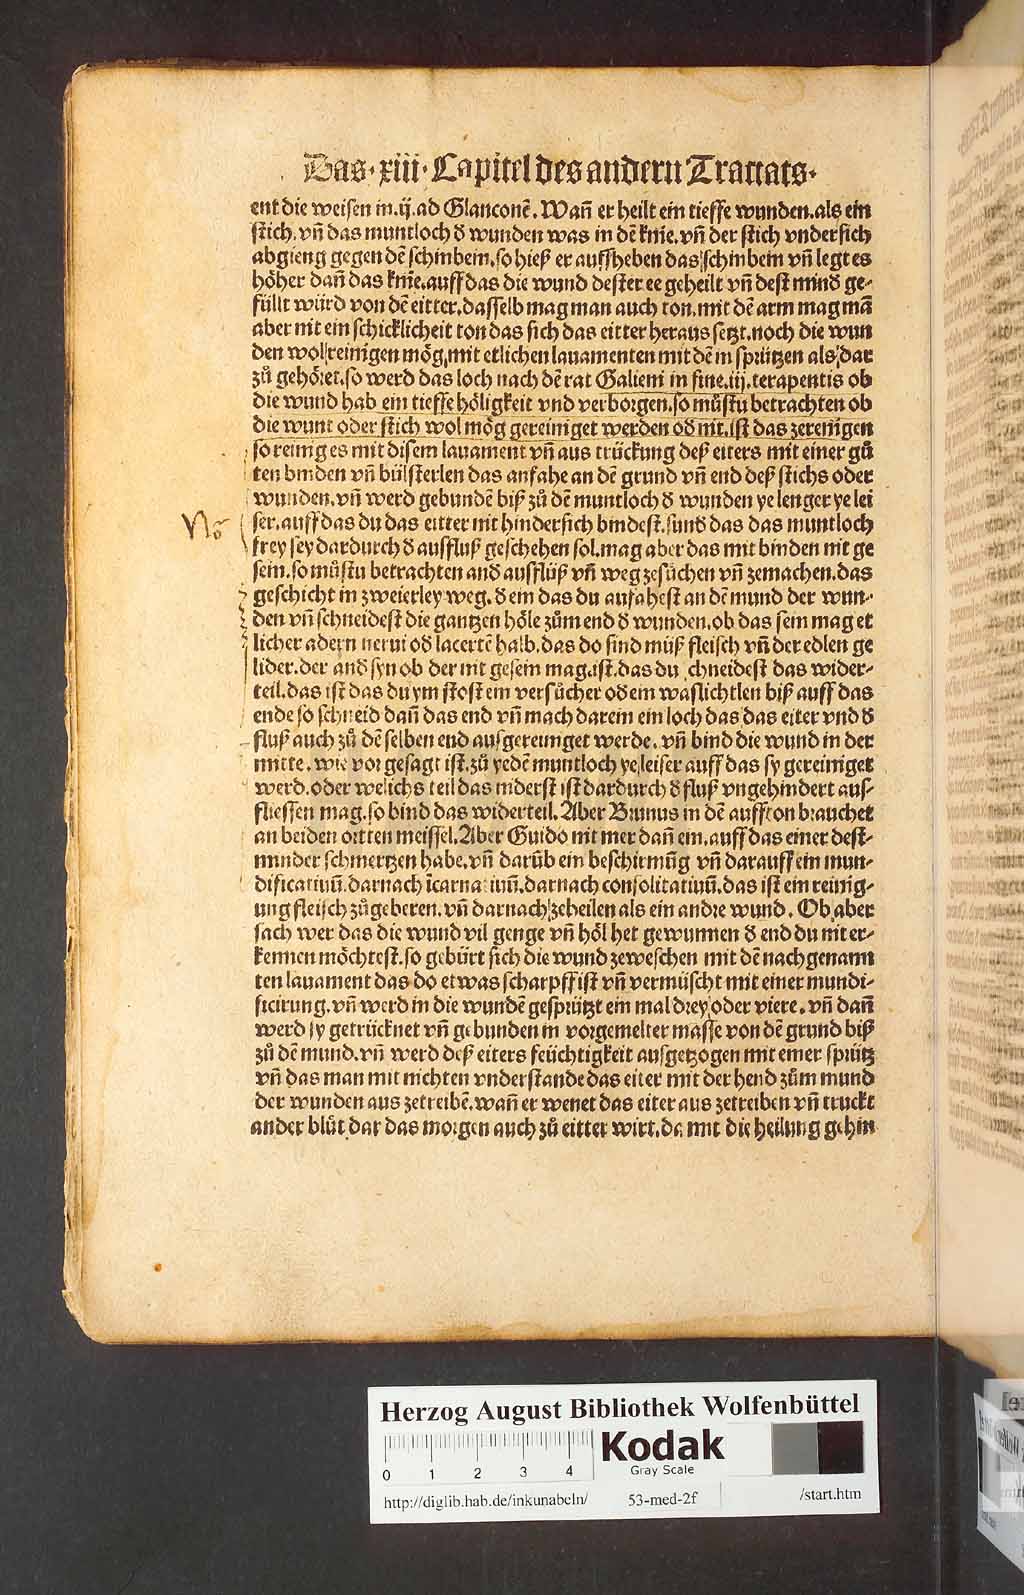 Das·xiii·Capitel des andern Tractats·
ent die weisen in.ij.ad Glanconē. Wañ er heilt ein tieffe wunden.als ein
stich.vñ das muntloch ð wunden was in dē knie.vñ der stich vndersich
abgieng gegen dē schinbein.so hieß er auffheben das schinbein vñ legt es
höher dañ das knie.auff das die wund dester ee geheilt vñ dest minð ge-
füllt würd von dē eitter.dasselb mag man auch ton.mit dē arm mag mā
aber nit ein schicklicheit ton das sich das eitter heraus setzt.noch die wun
den wol reinigen mög,mit etlichen lauamenten mit dē in sprützen als dar
zů gehöret.so werd das loch nach dē rat Galieni in fine.iij.terapentis ob
die wund hab ein tieffe höligkeit vnd verborgen.so můstu betrachten ob
die wunt oder stich wol mög gereiniget werden oð nit.ist das zereinigen
so reinig es mit disem lauament vñ aus trückung deß eiters mit einer gů
ten binden vñ bülsterlen das anfahe an dē grund vñ end deß stichs oder
wunden.vñ werd gebundē biß zů dē muntloch ð wunden ye lenger ye lei
No͂ ser.auff das du das eitter nit hindersich bindest.sunð das das muntloch
frey sey dardurch ð ausfluß geschehen sol.mag aber das mit binden nit ge
sein.so můstu betrachten anð ausflüß vñ weg zesůchen vñ zemachen.das
geschicht in zweierley weg.ð ein das du anfahest an dē mund der wun-
den vñ schneidest die gantzen höle zům end ð wunden.ob das sein mag et
licher adern nerui oð lacertē halb.das do sind můß fleisch vñ der edlen ge
lider.der anð syn ob der nit gesein mag.ist.das du schneidest das wider-
teil.das ist das du ym stost ein versůcher oð ein waslichtlen biß auff das
ende so schneid dañ das end vñ mach darein ein loch das das eiter vnd ð
fluß auch zů dē selben end ausgereiniget werde.vñ bind die wund in der
mitte.wie vor gesagt ist.zů yedē muntloch ye leiser auff das sy gereiniget
werd.oder welichs teil das niderst ist dardurch ð fluß vngehindert aus-
fliessen mag.so bind das widerteil. Aber Brunus in dē auffton brauchet
an beiden ortten meissel.Aber Guido nit mer dañ ein.auff das einer dest-
minder schmertzen habe.vñ darüb ein beschirmūg vñ darauff ein mun-
dificatiuū.darnach īcarnatiuū.darnach consolitatiuū.das ist ein reinig-
ung fleisch zůgeberen.vñ darnach zeheilen als ein andre wund. Ob aber
sach wer das die wund vil genge vñ höl het gewunnen ð end du nit er-
kennen möchtest.so gebürt sich die wund zeweschen mit dē nachgenann
ten lauament das do etwas scharpff ist vñ vermüscht mit einer mundi-
ficirung.vñ werd in die wundē gesprützt ein mal drey oder viere.vñ dañ
werd sy getrücknet vñ gebunden in vorgemelter masse von dē grund biß
zů dē mund.vñ werd deß eiters feüchtigkeit ausgetzogen mit einer sprütz
vñ das man mit nichten vnderstande das eiter mit der hend zům mund
der wunden aus zetreibē.wañ er wenet das eiter aus zetreiben vñ truckt
ander blůt dar das morgen auch zů eitter wirt.da mit die heilung gehin
Herzog August Bibliothek Wolfenbüttel
0 1 2 3 4
Kodak
Gray Scale
http://diglib.hab.de/inkunabeln/ 53-med-2f /start.htm